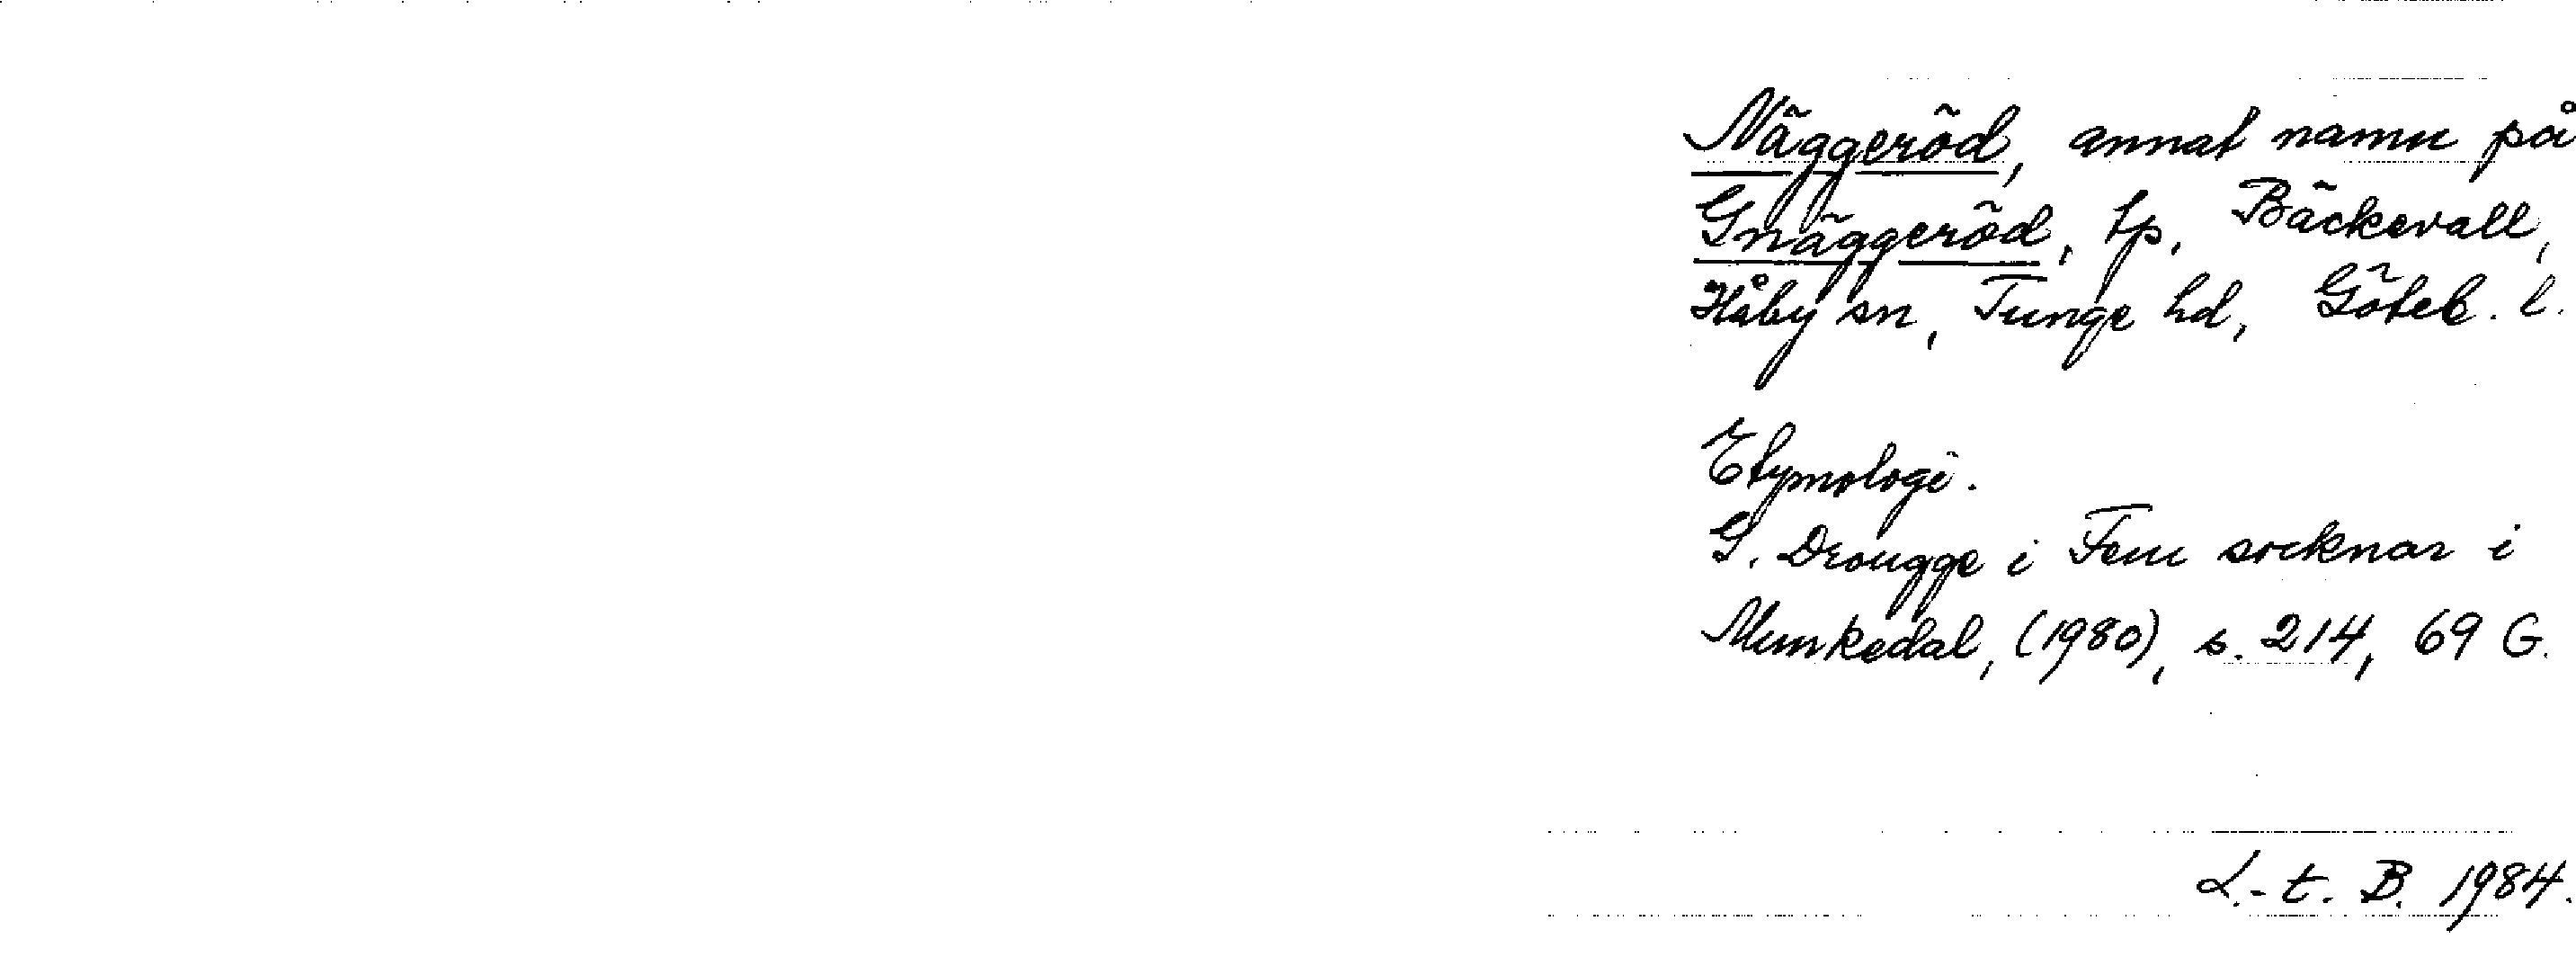 Näggeröd, annat namn på
Gnäggeröd, tp, Bäckevall,
Håby sn, Tunge hd, Göteb. l.
Etymologi.
G. Drougge i Fem socknar i
Munkedal, (1980), s. 214, 69 G.
L.-t. B. 1984.